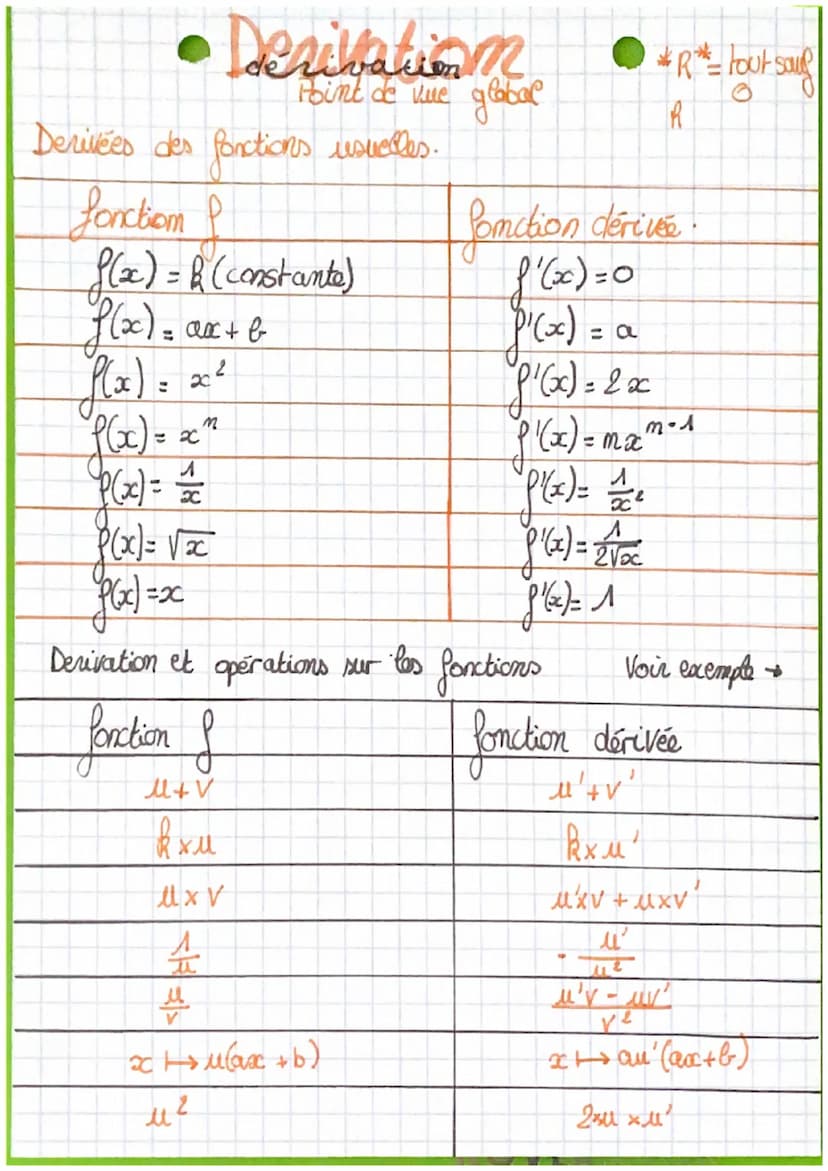 Derivation
dérivation
Point de vue global
*R* = tout sauf
0
R
Derivées des fonctions usuelles.
fonction f fonction dérivée.
f(x) = k (constante) f'(x) = 0
f(x) = ax + b f'(x) = a
f(x) = x² f'(x) = 2x
f(x) = xⁿ f'(x) = nxⁿ⁻¹
f(x) = 1/x f'(x) = 1/x²
f(x) = √x f'(x) = 1/2√x
f(x) = x f'(x) = 1
Derivation et opérations sur les fonctions Voir exemple →
fonction f fonction dérivée
u + v u' + v'
k × u k × u'
u × v u'×v + u×v'
1/u - u'/u²
u/v u'v - uv'/v²
x ↦ u(ax + b) x ↦ au'(ax+b)
u² 2×u × u'